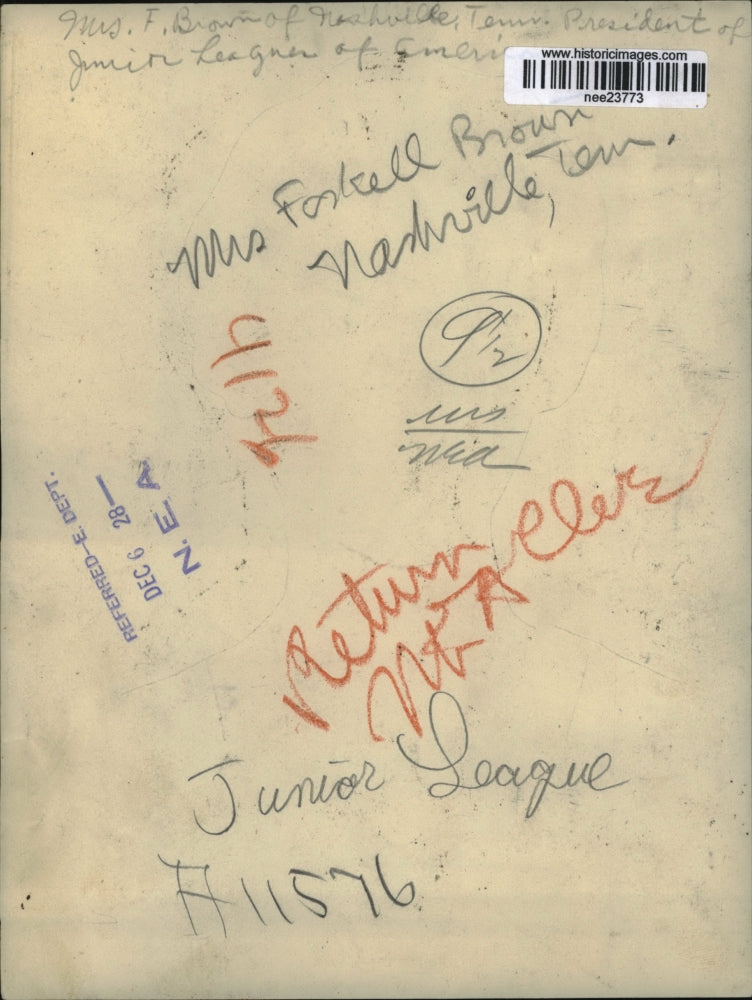 Mrs. F. Brown of Nashville, Tenn. President of
Junior Leagues of Ameri
www.historicimages.com
nee23773
Mrs Foskell Brown
Nashville, Tenn.
9 1/2
REFERRED-E. DEPT.
DEC 6 28
N. E. A.
Return
NEA Cleve
Junior League
H11576